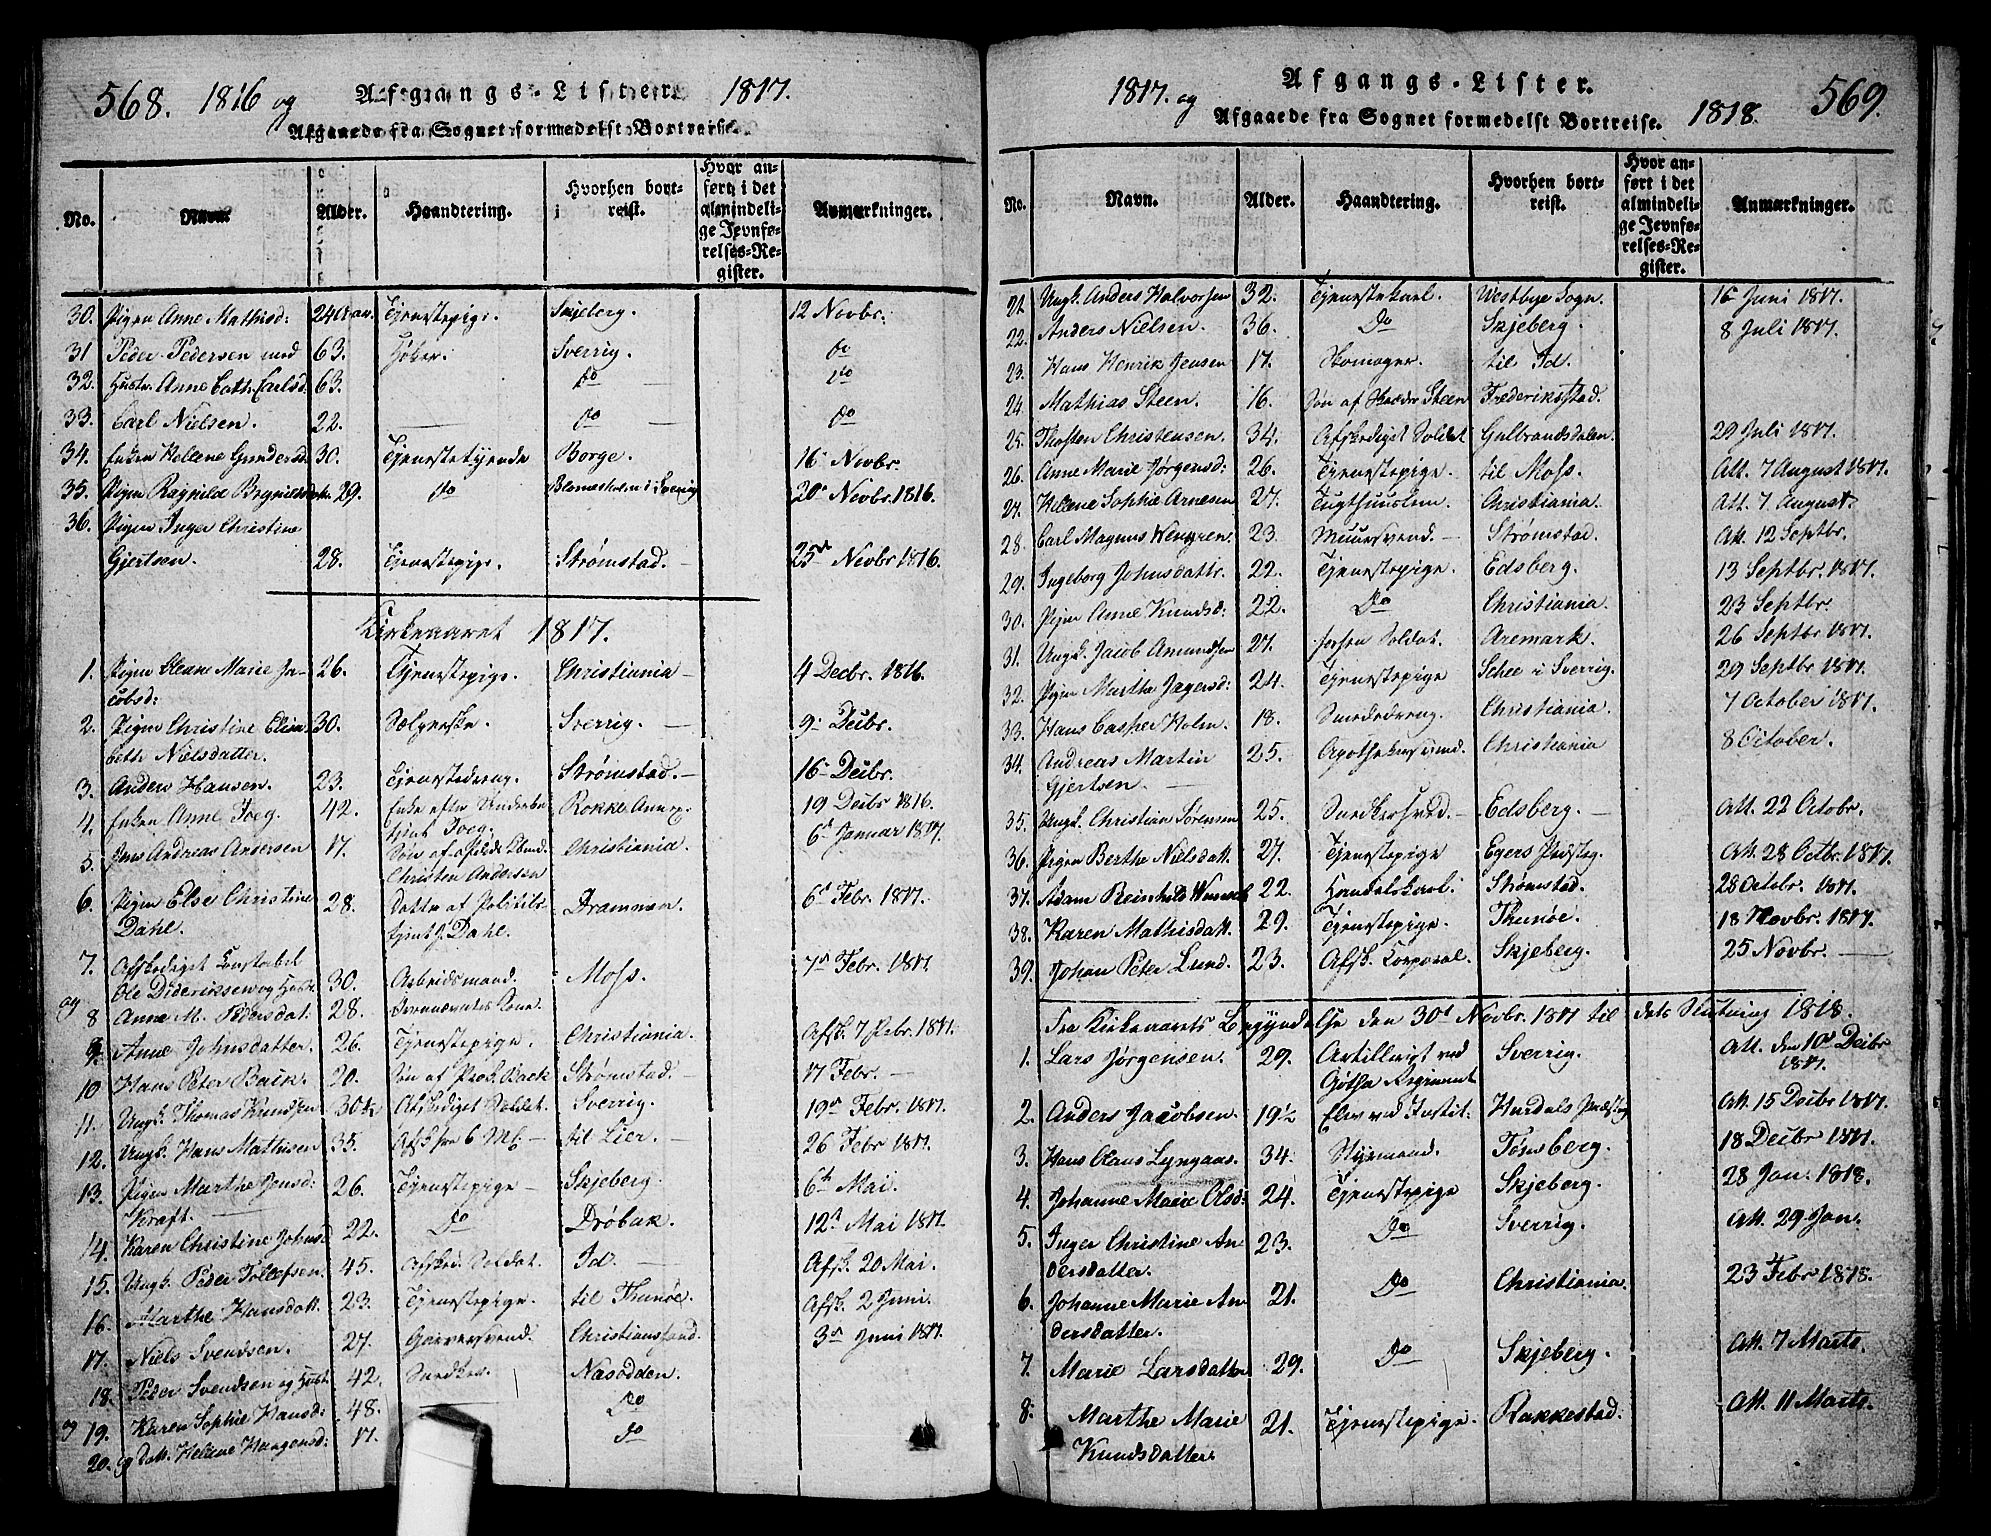 568. 1816 og Afgangs-Lister. 1817.
Afgaaede fra Sognet formedelst Bortreise.
No. Navn. Alder. Haandtering. Hvorhen bortreist. Hvor anført i det almindelige Jevnførelses-Register. Anmærkninger.
30. Pigen Anne Mathisd: 24 Skjeberg. 12 Novbr.
31 Peder Pedersen med 63. Sverrig. do
32. Hustr. Anne Cath. Carlsd. 63. do do
33. Carl Nielsen. 22. do do
34. Enken Hellene Gundersd. 30. Tjenestetyende Borge. 16 Novbr.
35. Pigen Ragnilde 29. do i Sverrig 20 Novbr. 1816.
36. Pigen Inger Christine
Gjertsen. 28. Tjenestepige. Strømstad. 25de Novbr 1816.
Kirkeaaret 1817.
1. Pigen Oleane Marie Ja- 26. Tjenestepige. Christiania 4 Decbr. 1816.
cobsd:
2. Pigen Christine Elisa- 30. Sverrig. 9 Decbr.
beth Nielsdatter.
3. Anders Hansen. 23. Tjenestedreng. Strømstad. 16 Decbr.
4. Enken Anne Foeg. 42. Enke efter Rokke Annex. 19 Decbr 1816.
Foeg.
5. Jens Andreas Andersen 17. Søn af Christiania. 6te Januar 1817.
Christen Andersen
6. Pigen Else Christine 28. Datter af Drammen. 6te Febr. 1817.
Dahl. J. Dahl.
7. Afskediget Constabel
Ole Dideriksen og Hust. 30. Arbeidsmand. Moss. 7de Febr. 1817.
og 8 Anne M. Pedersdat. 28.
9. Anne Johnsdatter. 26. Tjenestepige. Christiania. Afsk. 7 Febr. 1817.
10 Hans Peter Back. 20. Søn af Back Strømstad. 17 Febr.
11. Ungk. Thomas Knudsen 30 Afskediget Soldat. Sverrig. 19de Febr. 1817.
12. Ungk. Hans Mathisen 35. til Lier. 26 Febr 1817.
13. Pigen Marthe Jensd: 26. Tjenestepige Skjeberg. 6te Mai.
Kraft.
14. Karen Christine Johnsd 22. Do Drøbak. 12te Mai 1817.
15. Ungk. Peder Tollefsen. 45. Afsked. Soldat. Id. Afsk. 20 Mai.
16. Marthe Hansdatt. 23. Tjenestepige. til Thunøe Afsk. 2 Juni.
17. Niels Svendsen. 27. Garversvend. Christiansand. 3de Juni 1817.
18. Peder Svendsen og Hust. 42. Snedker. Nasodden.
og 19. Karen Sophie Hansd: 48. Do
20. og Datt. Helene Haagensd: 17. do
1817. og Afgangs-Lister. 569.
Afgaaede fra Sognet formedelst Bortreise. 1818.
No. Navn. Alder. Haandtering. Hvorhen bortreist. Hvor anført i det almindelige Jevnførelses-Register. Anmærkninger.
21 Ungk. Anders Halvorsen 32. Tjenestekarl. Westbye Sogn. 16 Juni 1817.
22. Anders Nielsen. 36. Do Skjeberg. 8 Juli 1817.
23. Hans Henrik Jensen 17. Skomager. til Id.
24. Mathias Steen. 16. Søn af Skræder Steen Frederikstad.
25. Thosten Christensen. 34. Afskediget Soldat Gulbrandsdalen. 29 Juli 1817.
26. Anne Marie Jørgensd: 26. Tjenestepige. til Moss. Att. 7 August 1817.
27. Helene Sophie Arnesen 27. Tugthuuslem. Christiania. Att. 7. August.
28. Carl Magnus Wengren. 23. Muursvend. Strømstad. Att. 12 Septbr.
29. Ingeborg Johnsdattr. 22. Tjenestepige. Edsberg. 13 Septbr. 1817.
30. Pigen Anne Knudsd: 22. Do Christiania. 23 Septbr.
31. Ungk. Jacob Amundsen 27. Soldat. Aremark. 26 Septbr 1817.
32. Pigen Marthe Jagersd: 24. Tjenestepige Schee i Sverrig. 29 Septbr 1817.
33. Hans Casper Holm 18. Smededreng. Christiania. 7 October 1817.
34. Andreas Martin 25. Apothekersvend. Christiania 8 October.
Gjertsen.
35. Ungk. Christian Sørensen 25. Edsberg. Att. 22 Octobr.
36. Pigen Berthe Nielsdatt. 27. Tjenestepige Egers Præsteg. Att. 28 Octbr. 1817.
37. Adam Reinhild 22. Handelskarl. Strømstad. 28 Octobr. 1817.
38. Karen Mathisdatt. 29. Tjenestepige. Thunøe. 18 Novbr. 1817.
39. Johan Peter Lund. 23. Afsk. Corporal. Skjeberg. 25 Novbr.
Fra Kirkeaarets Begyndelse den 30te Novbr. 1817 til dets Slutning 1818.
1. Lars Jørgensen. 29. Artillerist ved Sverrig. Att. den 10de Decbr
Gøtha Regiment 1817.
2. Anders Jacobsen. 19½ Elev ved Instit. Hurdals Præsteg Att. 15 Decbr 1817.
3. Hans Claus Lyngaas. 34. Styrmand. Tønsberg. 18 Decbr 1817.
4. Johanne Marie Olsd: 24. Tjenestepige Skjeberg. 28 Jan. 1818.
5. Inger Christine An 23. Do Sverrig. Att. 29 Jan.
dersdatter.
6. Johanne Marie An 21. Do Christiania. 23 Febr 1818.
dersdatter.
7. Marie Larsdatter 29. Do Skjeberg. Att. 7 Marts.
8. Marthe Marie 21. Tjenestepige. Rakkestad. Att. 11 Marts.
Knudsdatter.